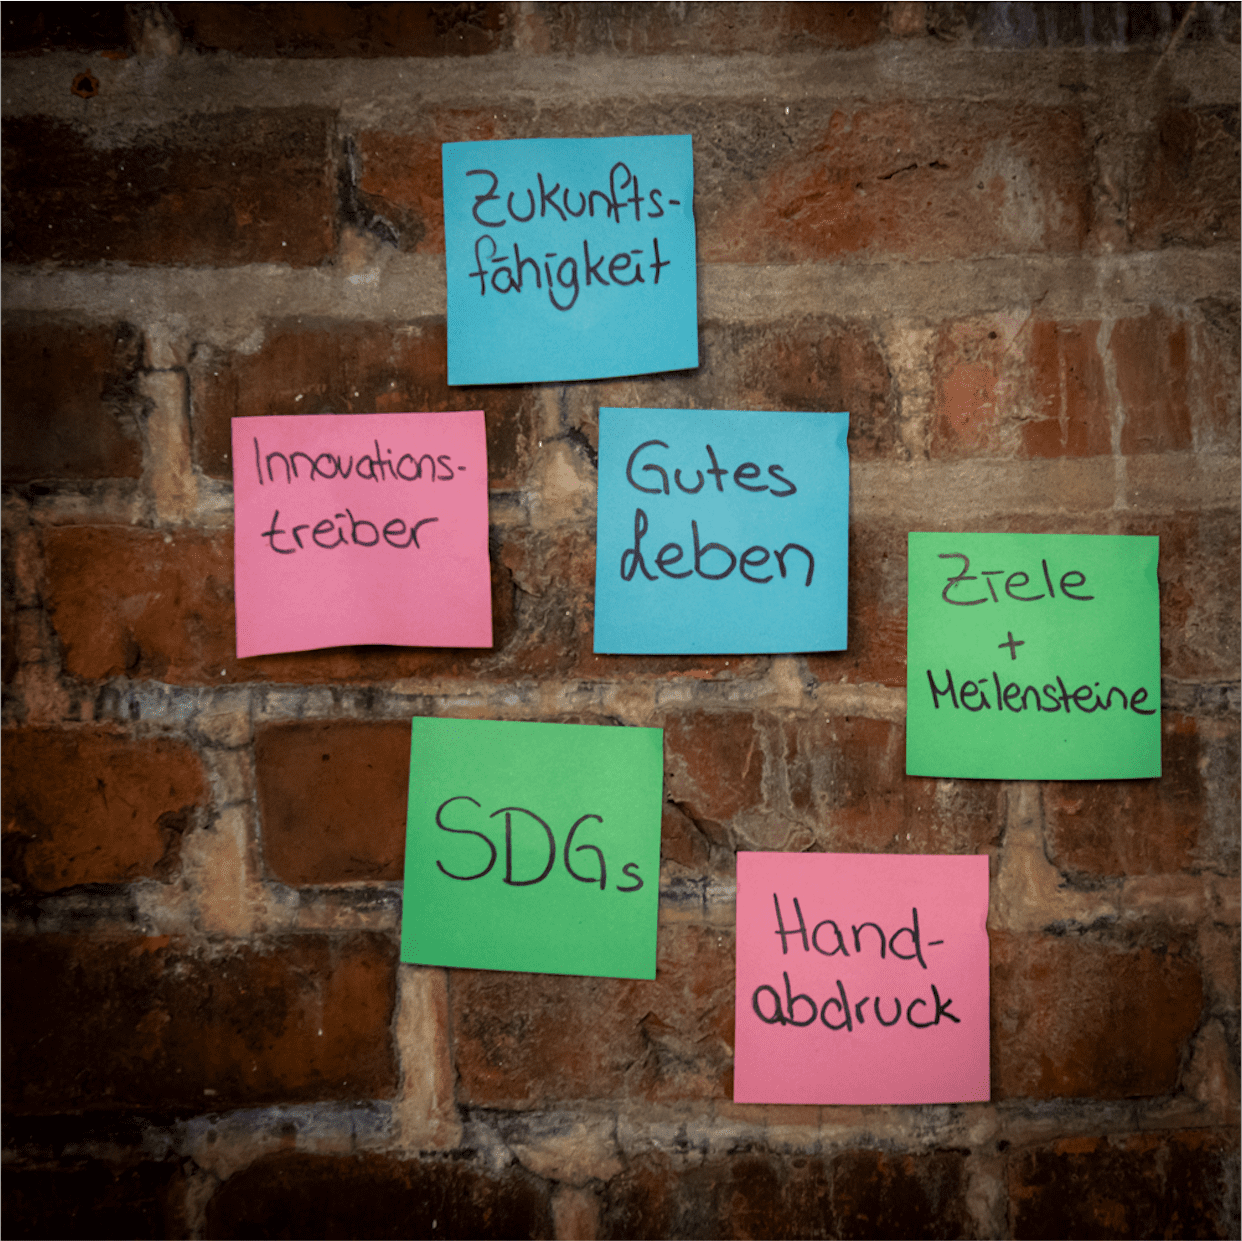 Zukunfts-
fähigkeit
Innovations-
treiber
Gutes
Leben
Ziele
+
Meilensteine
SDGs
Hand-
abdruck